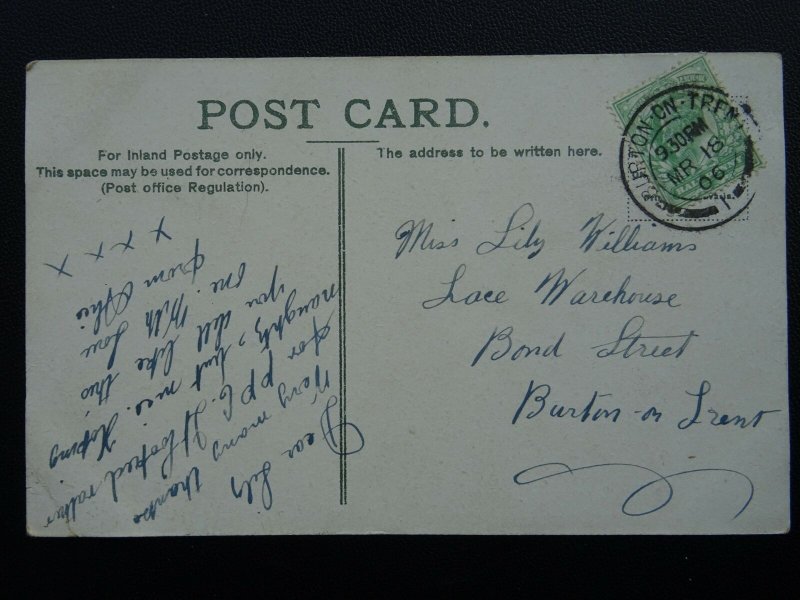 POST CARD.
For Inland Postage only.
This space may be used for correspondence.
(Post office Regulation).
The address to be written here.
BURTON-ON-TRENT
9.30PM
MR 18
06
1
Miss Lily Williams
Lace Warehouse
Bond Street
Burton-on Trent
Dear Lily
Very many thanks
for p.p.c. It looked rather
naughty, but nice. Hoping
you will like this
one. With love
from
x x x x